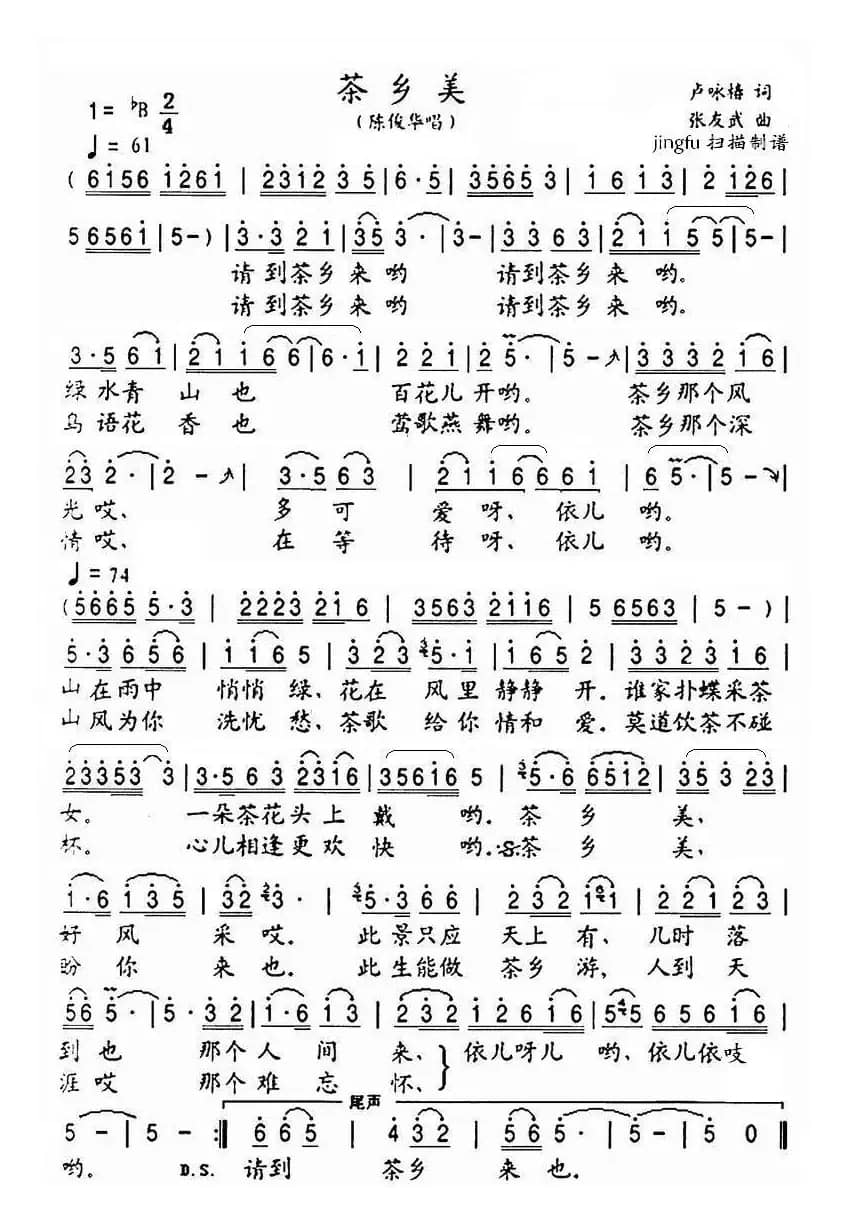 茶乡美
（陈俊华唱）
1=♭B 2/4
♩=61
卢咏椿 词
张友武 曲
jingfu 扫描制谱
(6156 1261 | 2312 3 5 | 6·5 | 3565 3 | 1 6 1 3 | 2 126 |
5 6561 | 5-) | 3·3 2 1 | 35 3· | 3- | 3 3 6 3 | 2 1 1 5 5 | 5- |
请到茶乡来哟 请到茶乡来哟。
请到茶乡来哟 请到茶乡来哟。
3·5 6 1 | 2 1 1 6 6 | 6·1 | 2 2 1 | 2 5· | 5 - | 3 3 3 2 1 6 |
绿水青山也 百花儿开哟。 茶乡那个风
鸟语花香也 莺歌燕舞哟。 茶乡那个深
23 2· | 2 - | 3·5 63 | 2 1 1 6 6 6 1 | 6 5· | 5 - |
光哎、 多可爱呀、依儿哟。
情哎、 在等待呀、依儿哟。
♩=74
(5665 5·3 | 2223 21 6 | 3563 2116 | 5 6563 | 5 -) |
5·3 6 5 6 | 1 1 6 5 | 3 2 3 5·1 | 1 6 5 2 | 3 2 3 1 6 |
山在雨中 悄悄绿、花在风里静静开。谁家扑蝶采茶
山风为你 洗忧愁、茶歌给你情和爱。莫道饮茶不碰
233533 | 3·5 6 3 2316 | 3561 6 5 | 5·6 6512 | 35 3 23 |
女。 一朵茶花头上戴哟。茶乡美、
杯。 心儿相逢更欢快哟。茶乡美、
1·6 1 3 5 | 32 3· | 5·3 6 6 | 2 3 2 1 1 | 2 2 1 2 3 |
好风采哎。此景只应天上有、儿时落
盼你来也。此生能做茶乡游，人到天
56 5· | 5·3 2 | 1·6 1 3 | 2 3 2 1 2 6 1 6 | 5 5 6 5 6 1 6 |
到也 那个人间来、依儿呀儿哟、依儿依吱
涯哎 那个难忘怀、
尾声
5 - | 5 - :‖ 6 6 5 | 4 3 2 | 5 6 5 | 5 - | 5 0 ‖
哟。 D.S. 请到茶乡来也.